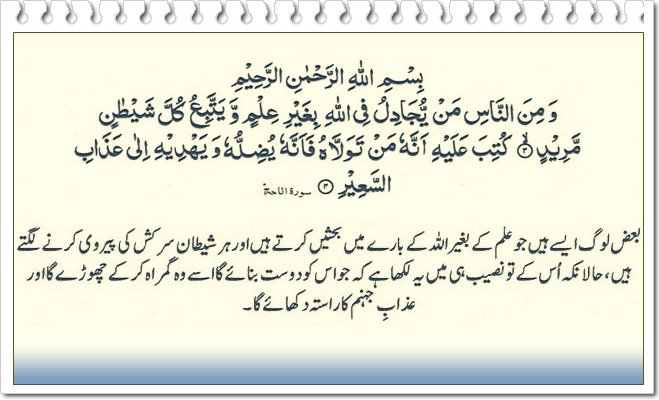 بِسْمِ اللهِ الرَّحْمٰنِ الرَّحِيْمِ
وَ مِنَ النَّاسِ مَنْ يُّجَادِلُ فِى اللهِ بِغَيْرِ عِلْمٍ وَّ يَتَّبِعُ كُلَّ شَيْطٰنٍ
مَّرِيْدٍ ۙ﴿۳﴾ كُتِبَ عَلَيْهِ اَنَّهٗ مَنْ تَوَلَّاهُ فَاَنَّهٗ يُضِلُّهٗ وَ يَهْدِيْهِ اِلٰى عَذَابِ
السَّعِيْرِ ﴿۴﴾ سورة الحج
بعض لوگ ایسے ہیں جو علم کے بغیر اللہ کے بارے میں بحثیں کرتے ہیں اور ہر شیطان سرکش کی پیروی کرنے لگتے
ہیں، حالانکہ اُس کے تو نصیب ہی میں یہ لکھا ہے کہ جو اس کو دوست بنائے گا اسے وہ گمراہ کر کے چھوڑے گا اور
عذابِ جہنم کا راستہ دکھائے گا۔